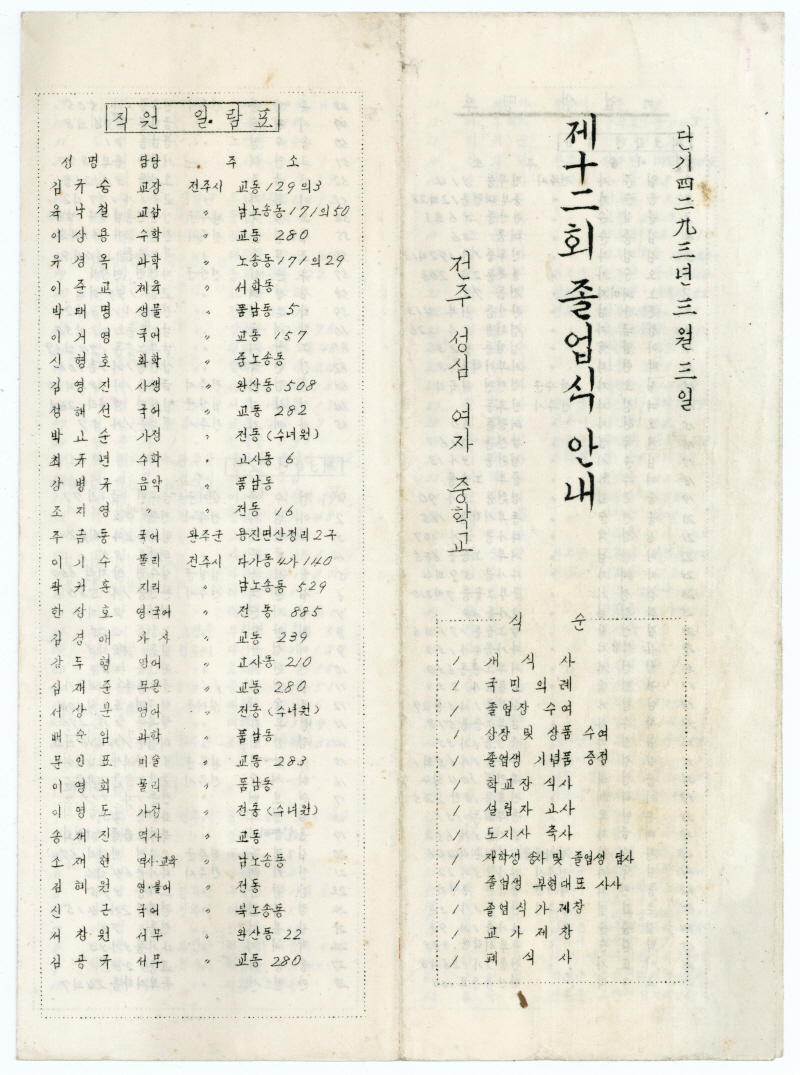 단기 四二九三년 三월 三일
제十二회 졸업식 안내
전주 성심 여자 중학교
식 순
/ 개 식 사
/ 국 민 의 례
/ 졸업장 수여
/ 상장 및 상품 수여
/ 졸업생 기념품 증정
/ 학교장 식사
/ 설립자 고사
/ 도지사 축사
/ 재학생 송사 및 졸업생 답사
/ 졸업생 부형대표 사사
/ 졸업식가 제창
/ 교가 제창
/ 폐 식 사
직원 일람표
성명 담당 주 소
김규승 교장 전주시 교동 129의3
육낙철 교감 〃 남노송동 171의50
이상용 수학 〃 교동 280
유경옥 과학 〃 노송동 171의29
이준교 체육 〃 서학동
박태명 생물 〃 풍남동 5
이거영 국어 〃 교동 157
신형호 화학 〃 중노송동
김영진 사생 〃 완산동 508
정해선 국어 〃 교동 282
박고순 가정 〃 전동 (수녀원)
최규년 수학 〃 고사동 6
강병규 음악 〃 풍남동
조지영 〃 〃 전동 16
주금동 국어 완주군 용진면산정리 2구
이기수 물리 전주시 다가동4가 140
곽귀훈 지리 〃 남노송동 529
한상호 영·국어 〃 전동 885
김경애 가사 〃 교동 239
강두형 영어 〃 고사동 210
심재준 무용 〃 교동 280
서상분 영어 〃 전동 (수녀원)
배수임 과학 〃 풍남동
문인표 미술 〃 교동 283
이영희 물리 〃 풍남동
이영도 가정 〃 전동 (수녀원)
송재진 역사 〃 교동
소재현 역사·교육 〃 남노송동
김혜원 영·불어 〃 전동
신근 국어 〃 북노송동
서창원 서무 〃 완산동 22
심공규 서무 〃 교동 280